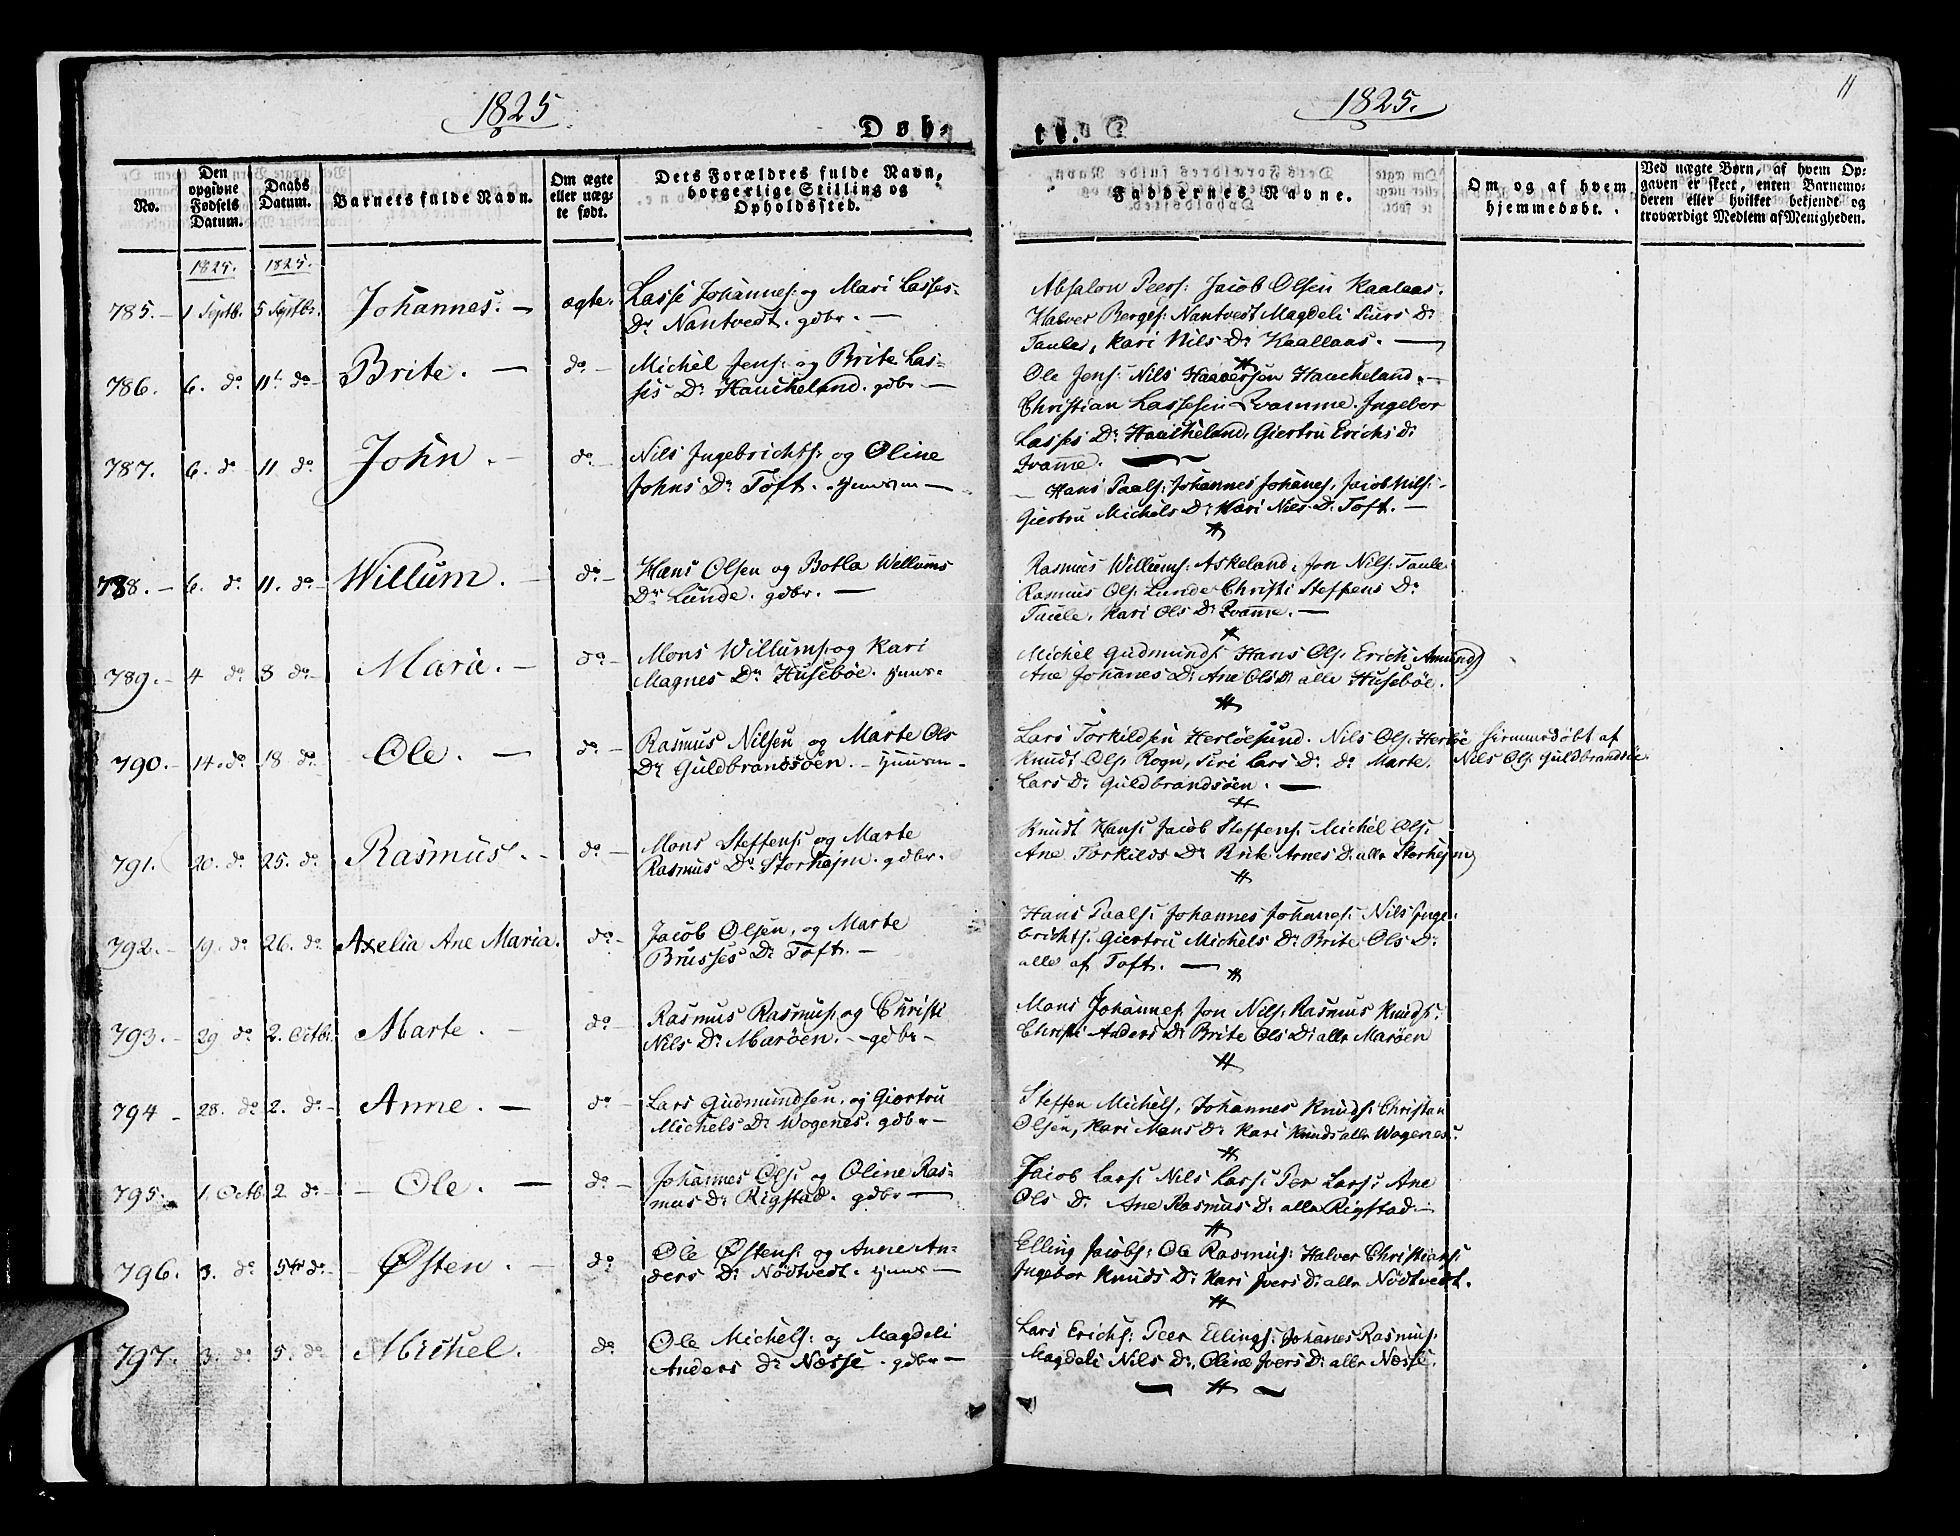 1825
Døb-
No.
Den opgivne Fødsels Datum.
Daabs Datum.
Barnets fulde Navn.
Om ægte eller uægte født.
Dets Forældres fulde Navn, borgerlige Stilling og Opholdssted.
1825. 1825.
785. 1 Septb. 5 Septbr. Johannes. ægte. Lasse Johannes: og Mari Lasses-
Dr Nantvedt. gdbr.
786. 6. do 11t do Brite. do Michel Jens: og Brite Las-
ses Dr Haucheland. gdbr
787. 6. do 11. do John. do Nils Ingebrichts: og Oline
Johns Dr Toft.
788. 6. do 11. do Willum. do Hans Olsen og Botla Willums
Dr Lunde. gdbr.
789. 4 do 8 do Mari. do Mons Willums: og Kari
Magnes Dr Husebøe.
790. 14. do 18 do Ole. do Rasmus Nilsen og Marte Ols
Dr Guldbrandsøen.
791. 20. do 25. do Rasmus. do Mons Steffens: og Marte
Rasmus Dr Storhejm. gdbr.
792. 19. do 26. do Axelia Ane Maria. do Jacob Olsen, og Marte
Brusses Dr Toft.
793. 29 do 2. Octbr. Marte. do Rasmus Rasmus: og Christi
Nils Dr Marøen. gdbr
794 28. do 2. do Anne. do Lars Gudmundsen, og Giertru
Michels Dr Wogenes. gdbr
795. 1. Octb. 2 do Ole. do Johannes Ols: og Oline Ras-
mus Dr Rigstad. gdbr
796. 3. do 5te do Østen. do Ole Østens: og Anne An-
ders Dr Nødtvedt.
797. 3. do 5. do Michel. do Ole Michels: og Magdeli
Anders Dr Næsse. gdbr
1825.
11
te.
Faddernes Navne.
Om og af hvem hjemmedøbt.
Ved uægte Børn, af hvem Op-
gaven er skeet, enten Barnemo-
deren eller hvilket bekjendt og
troværdigt Medlem af Menigheden.
Absalon Peers: Jacob Olsen Kaalaas.
Halver Berges: Nantvedt Magdeli Siurs Dr
Taule, Kari Nils Dr Kaallaas.
Ole Jens: Nils Haaversen Haucheland.
Christian Lassesen Qvamme. Ingebor
Lasses Dr Haucheland, Giertru Erichs d:
Qvamme.
Hans Paals: Johannes Johanes, Jacob Nils:
Giertru Michels Dr Kari Nils D: Toft.
Rasmus Willums: Askeland, Jon Nils: Taule
Rasmus Ols: Lunde Christi Steffens Dr
Taule, Kari Ols Dr Qvamme.
Michel Gudmunds: Hans Ols: Erich Amunds
Ane Johanes Dr Ane Ols Dr alle Husebøe.
Lars Torkildsen Herløesund. Nils Ols: Herløe hiemmedøbt af
Knudt Ols: Rogn, Siri Lars Dr do Marte. Nils Ols: Guldbrandsøe
Lars Dr Guldbrandsøen.
Knudt Hans: Jacob Steffens: Michel Ols:
Ane Torkilds Dr Brite Arnes D: alle Storhejm
Hans Paals: Johannes Johanes: Nils Inge-
brichts: Giertru Michels Dr Brite Ols Dr
alle af Toft.
Mons Johannes: Jon Nils: Rasmus Knuds:
Christi Anders D: Brite Ols D: alle Marøen
Steffen Michels, Johannes Knuds: Christian
Olsen, Kari Mons Dr Kari Knuds alle Wogenes:
Jacob Lars: Nils Lars: Per Lars: Ane
Ols D: Ane Rasmus D: alle Rigstad
Elling Jacobs: Ole Rasmus: Halver Christians:
Ingebor Knuds Dr Kari Ivers D: alle Nødtvedt.
Lars Erichs: Peer Ellings: Johanes Rasmus:
Magdeli Nils Dr, Ivers D: alle Næsse.